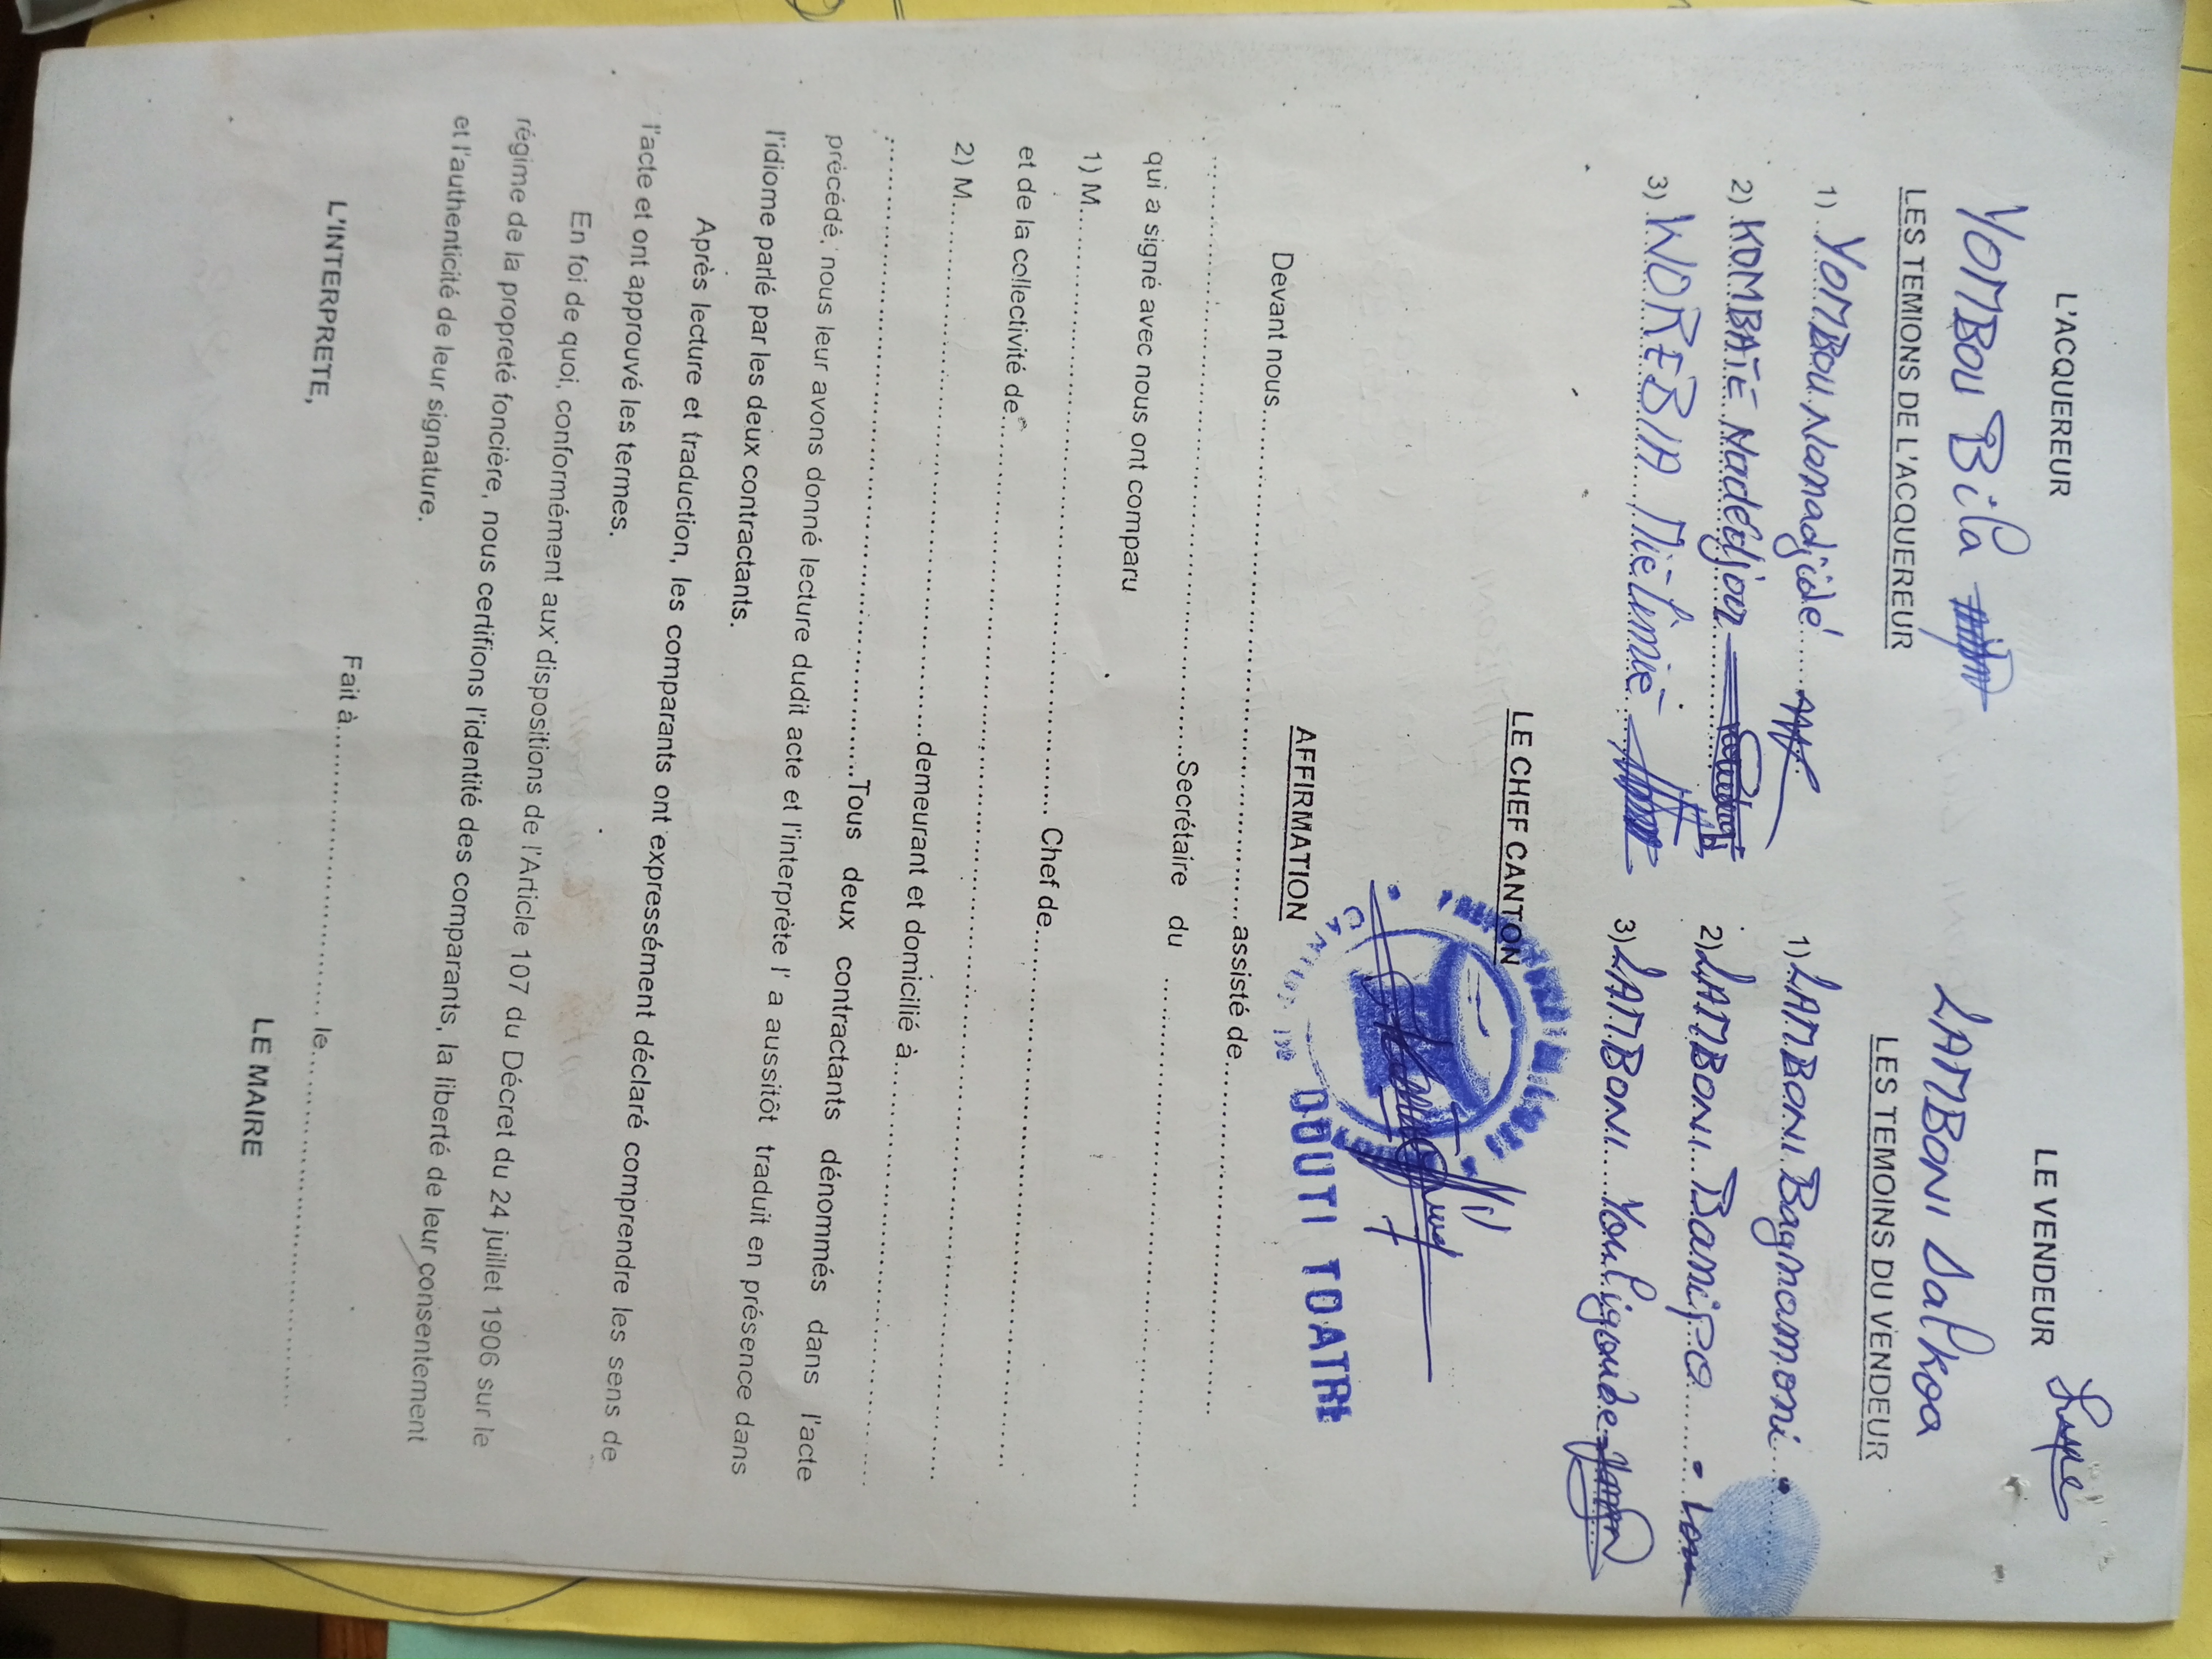 L'ACQUEREUR LE VENDEUR
YOMBOU Bila LAMBONI Salkoa
LES TEMIONS DE L'ACQUEREUR LES TEMOINS DU VENDEUR
1) YOMBOU Nanadjidé 1) LAMBONI Bagnammoni
2) KOMBATE Nadédjoa 2) LAMBONI Banipo
3) WOREBIA 3) LAMBONI Youligoude
LE CHEF CANTON
DOUTI TOATRE
AFFIRMATION
Devant nous..........assisté de..........
..........Secrétaire du ..........
qui a signé avec nous ont comparu
1) M..........
et de la collectivité de.......... Chef de..........
2) M..........
..........demeurant et domicilié à..........
..........Tous deux contractants dénommés dans l'acte
précédé, nous leur avons donné lecture dudit acte et l'interprète l' a aussitôt traduit en présence dans
l'idiome parlé par les deux contractants.
Après lecture et traduction, les comparants ont expressément déclaré comprendre les sens de
l'acte et ont approuvé les termes.
En foi de quoi, conformément aux dispositions de l'Article 107 du Décret du 24 juillet 1906 sur le
régime de la propreté foncière, nous certifions l'identité des comparants, la liberté de leur consentement
et l'authenticité de leur signature.
Fait à.......... le..........
L'INTERPRETE, LE MAIRE